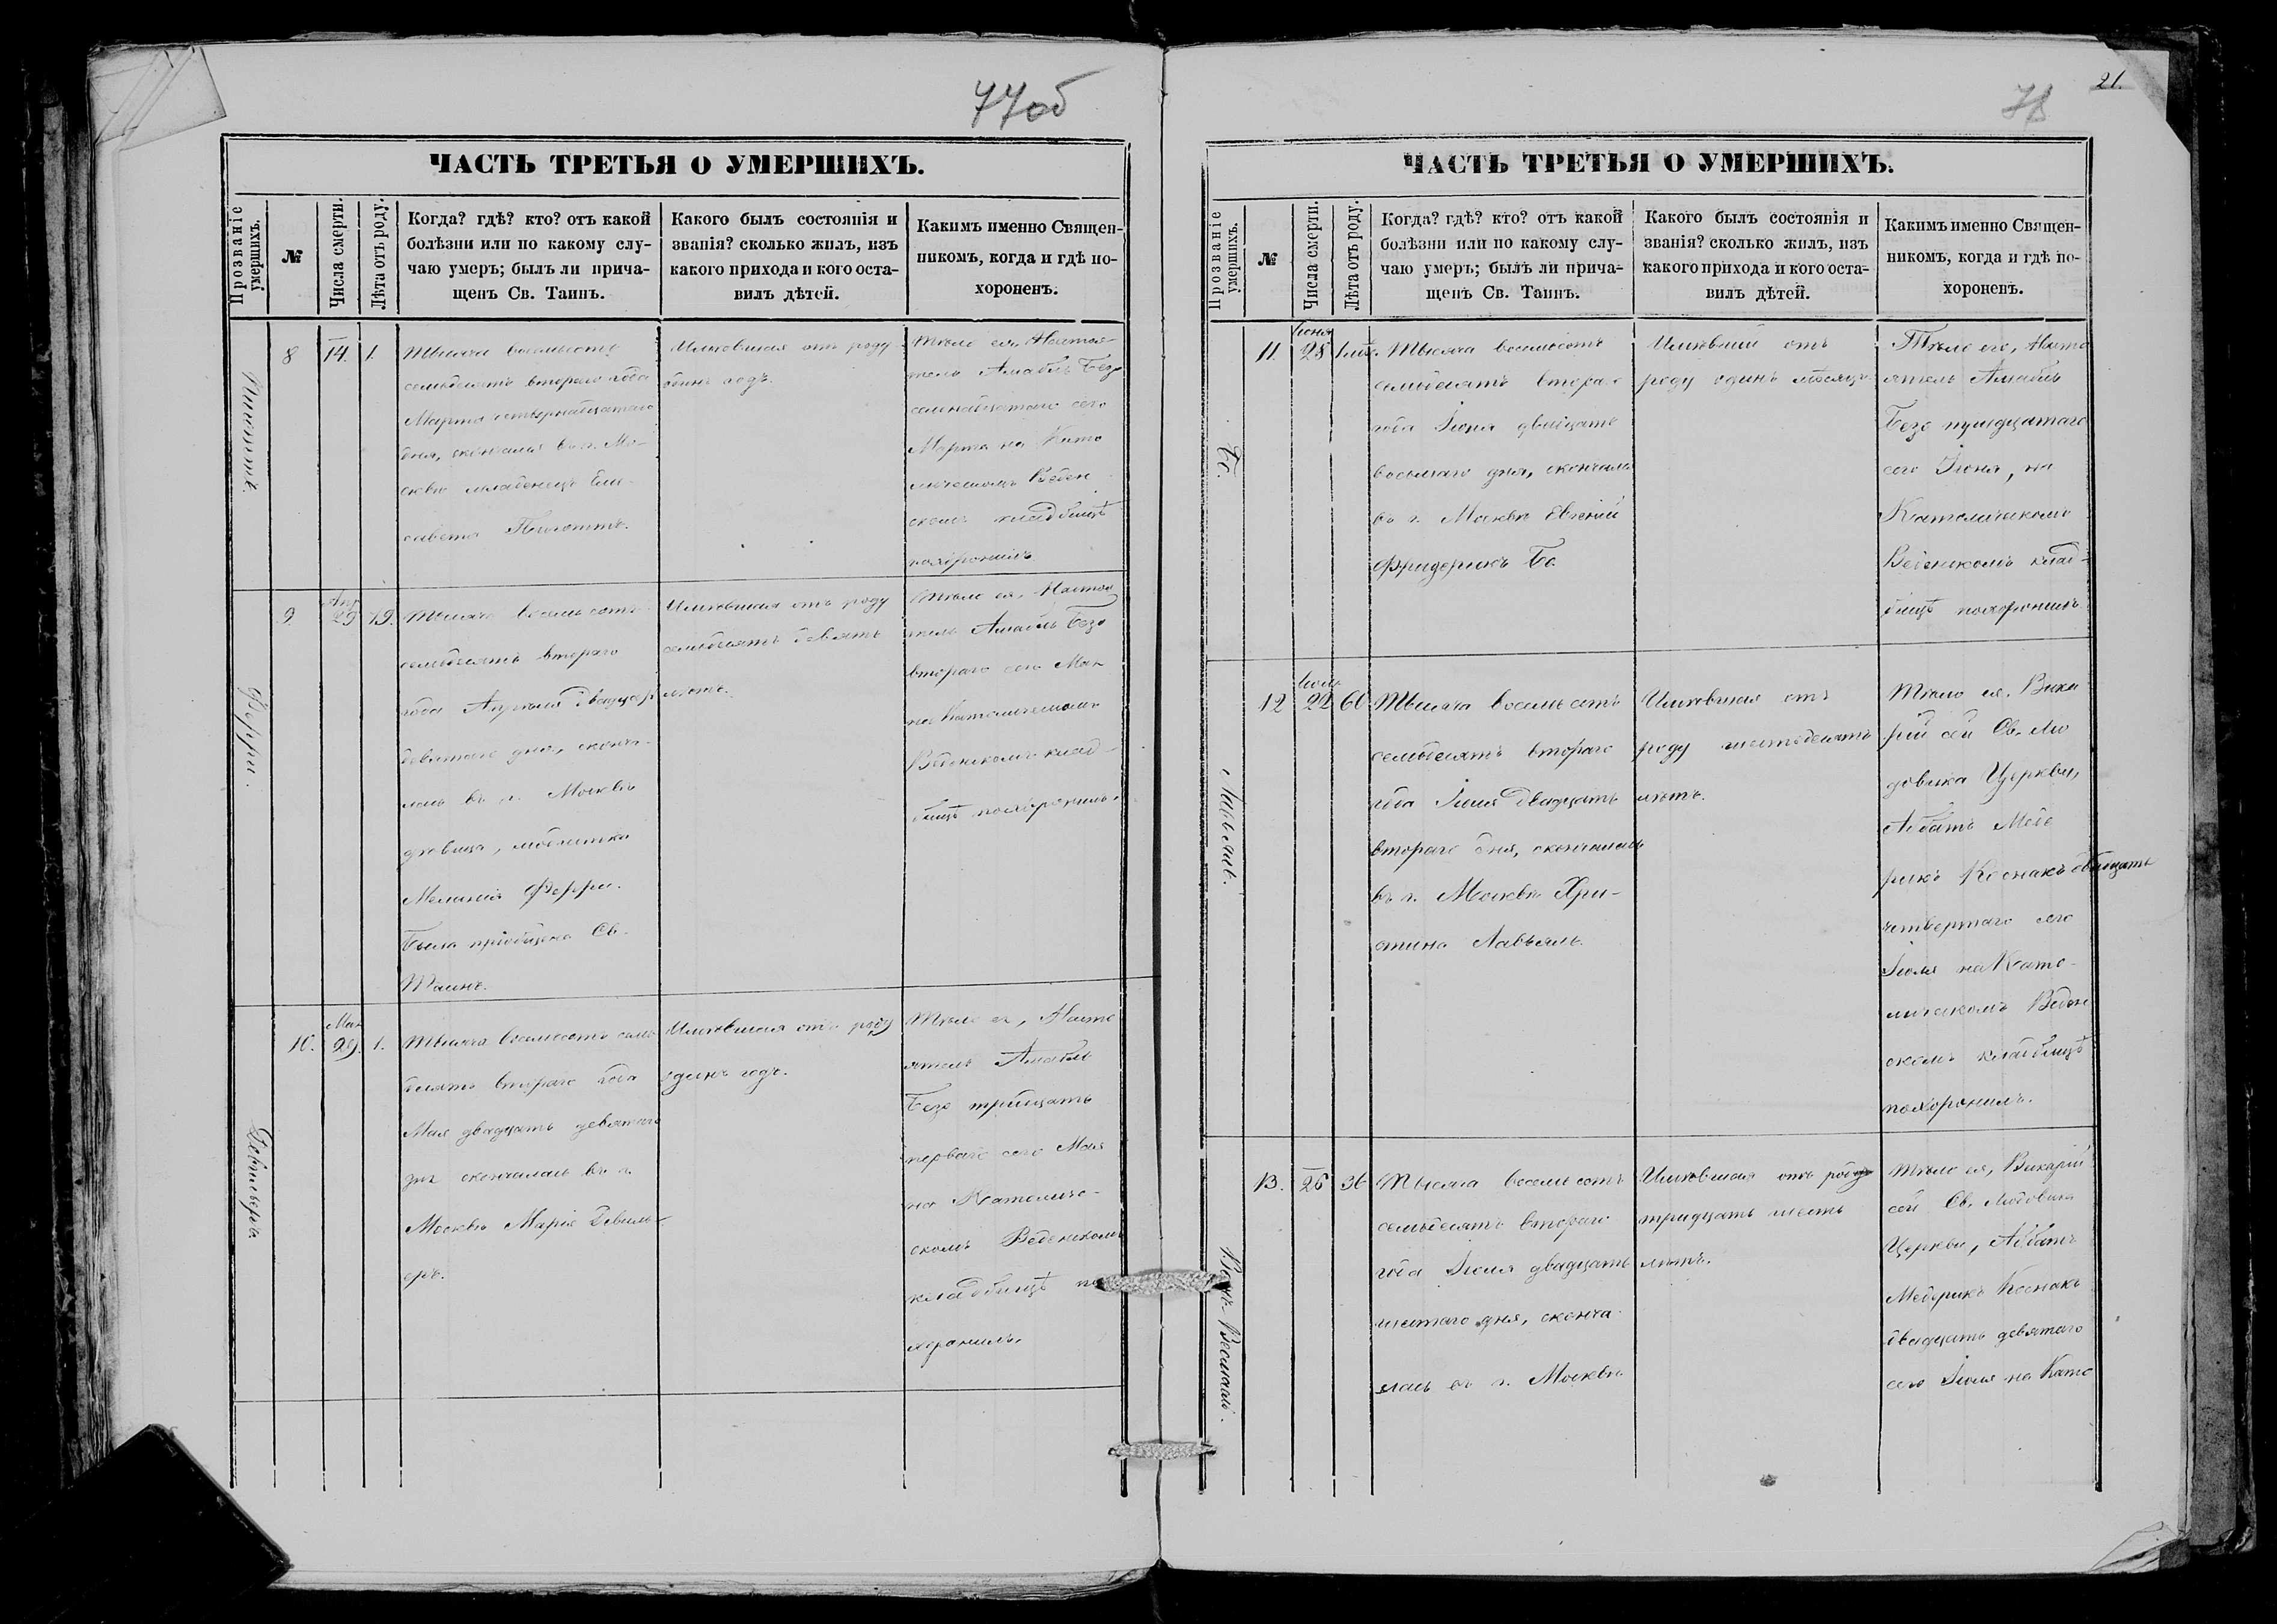 77об
ЧАСТЬ ТРЕТЬЯ О УМЕРШИХЪ.
Прозваніе умершихъ.
№
Числа смерти.
Лѣта отъ роду.
Когда? гдѣ? кто? отъ какой
болѣзни или по какому слу-
чаю умеръ; былъ ли прича-
щенъ Св. Таинъ.
Какого былъ состоянія и
званія? сколько жилъ, изъ
какого прихода и кого оста-
вилъ дѣтей.
Какимъ именно Священ-
никомъ, когда и гдѣ по-
хороненъ.
8
14.
1.
Тысяча восемьсотъ
семьдесятъ второго года
Марта четырнадцатаго
дня, скончалась въ г. Мо-
сквѣ младенецъ Ели-
савета
Имѣвшая отъ роду
одинъ годъ.
Тѣло ея, Настоя-
тель Амабль Безо
семнадцатаго сего
Марта на Като
лическомъ Веден
скомъ кладбищѣ
похоронилъ
Ферри.
9
Апр
29
79.
Тысяча восемьсотъ
семьдесятъ втораго
года Апрѣля двадцать
девятаго дня, сконча-
лась въ г. Москвѣ
дѣвица,
Меланія Ферри.
Была пріобщена Св.
Таинъ.
Имѣвшая отъ роду
семьдесятъ девять
лѣтъ.
Тѣло ея, Настоя
тель Амабль Безо
втораго сего Мая
на Католическомъ
Веденскомъ клад-
бищѣ похоронилъ.
Девильеръ
10.
Мая
29.
1.
Тысяча восемьсотъ семь
десятъ втораго года
Мая двадцать девятаго
дня скончалась въ г.
Москвѣ Марія Девиль-
еръ.
Имѣвшая отъ роду
одинъ годъ.
Тѣло ея, Насто
ятель Амабль
Безо тридцать
перваго сего Мая
на Католиче-
скомъ Веденскомъ
кладбищѣ по
хоронилъ.
21.
78
ЧАСТЬ ТРЕТЬЯ О УМЕРШИХЪ.
Прозваніе умершихъ.
№
Числа смерти.
Лѣта отъ роду.
Когда? гдѣ? кто? отъ какой
болѣзни или по какому слу-
чаю умеръ; былъ ли прича-
щенъ Св. Таинъ.
Какого былъ состоянія и
званія? сколько жилъ, изъ
какого прихода и кого оста-
вилъ дѣтей.
Какимъ именно Священ-
никомъ, когда и гдѣ по-
хороненъ.
Бо.
11.
Іюня
28
Тысяча восемьсотъ
семьдесятъ втораго
года Іюня двадцать
восьмаго дня, скончался
въ г. Москвѣ Евгеній
Фридерикъ Бо.
Имѣвшій отъ
роду одинъ мѣсяцъ
Тѣло его, Насто
ятель Амабль
Безо тридцатаго
сего Іюня, на
Католическомъ
Веденскомъ клад-
бищѣ похоронилъ.
Лавьяль.
12
Іюля
22
60
Тысяча восемьсотъ
семьдесятъ втораго
года Іюля двадцать
втораго дня, скончалась
въ г. Москвѣ Хри-
стина Лавьяль.
Имѣвшая отъ
роду шестьдесятъ
лѣтъ.
Тѣло ея. Вика
рій сей Св. Лю
довика Церкви,
Аббатъ Меде
рикъ Коснакъ двадцать
четвертаго сего
Іюля на Като-
лическомъ Веден
скомъ кладбищѣ
похоронилъ.
13.
26
36
Тысяча восемьсотъ
семьдесятъ втораго
года Іюля двадцать
шестаго дня, сконча-
лась въ г. Москвѣ
Имѣвшая отъ роду
тридцать шесть
лѣтъ.
Тѣло ея, Викарій
сей Св. Людовика
Церкви, Аббатъ
Медерикъ Коснакъ
двадцать девятаго
сего Іюля на Като